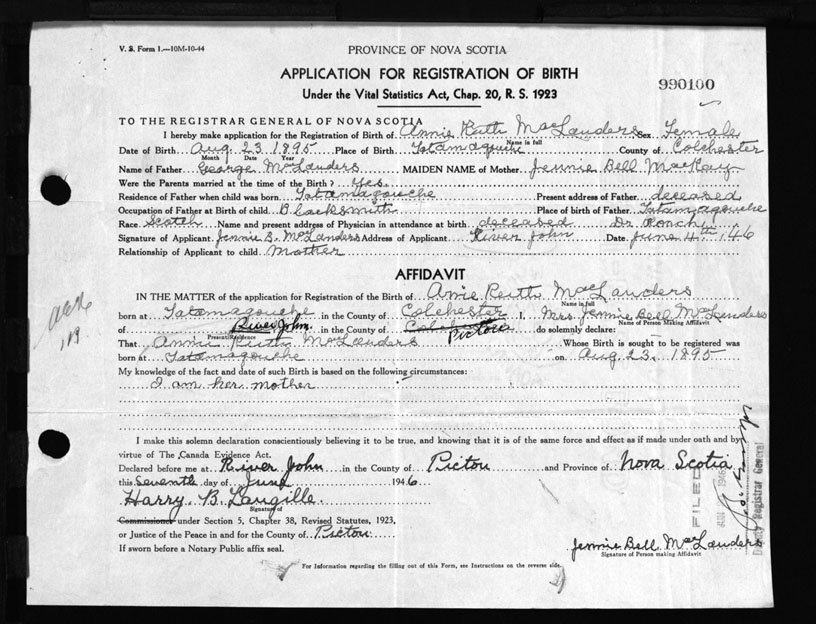 V. S. Form 1.—10M-10-44
PROVINCE OF NOVA SCOTIA
APPLICATION FOR REGISTRATION OF BIRTH
990100
Under the Vital Statistics Act, Chap. 20, R. S. 1923
TO THE REGISTRAR GENERAL OF NOVA SCOTIA
I hereby make application for the Registration of Birth of Annie Ruth MacLanders Sex Female
Name in full
Date of Birth Aug 23 1895 Place of Birth Tatamagouche County of Colchester
Month Date Year
Name of Father George McLanders MAIDEN NAME of Mother Jennie Bell MacKay
Were the Parents married at the time of the Birth? Yes
Residence of Father when child was born Tatamagouche Present address of Father deceased
Occupation of Father at Birth of child Blacksmith Place of birth of Father Tatamagouche
Race Scotch Name and present address of Physician in attendance at birth deceased Dr Roach
Signature of Applicant Jennie B. McLanders Address of Applicant River John Date June 4th, 46
Relationship of Applicant to child mother
AFFIDAVIT
IN THE MATTER of the application for Registration of the Birth of Anie Ruth MacLanders
Name in full
born at Tatamagouche in the County of Colchester I, Mrs Jennie Bell McLanders
Name of Person Making Affidavit
of River John in the County of Colchester Pictou do solemnly declare:
Present Residence
That Annie Ruth McLanders Whose Birth is sought to be registered was
born at Tatamagouche on Aug 23, 1895
My knowledge of the fact and date of such Birth is based on the following circumstances:
I am her mother
I make this solemn declaration conscientiously believing it to be true, and knowing that it is of the same force and effect as if made under oath and by
virtue of The Canada Evidence Act.
Declared before me at River John in the County of Pictou and Province of Nova Scotia
this Seventh day of June 1946
Harry B. Langille
Signature of
Commissioner under Section 5, Chapter 38, Revised Statutes, 1923,
or Justice of the Peace in and for the County of Pictou
If sworn before a Notary Public affix seal.
Jennie Bell MacLanders
Signature of Person making Affidavit
For Information regarding the filling out of this Form, see Instructions on the reverse side.
FILED
Deputy Registrar General